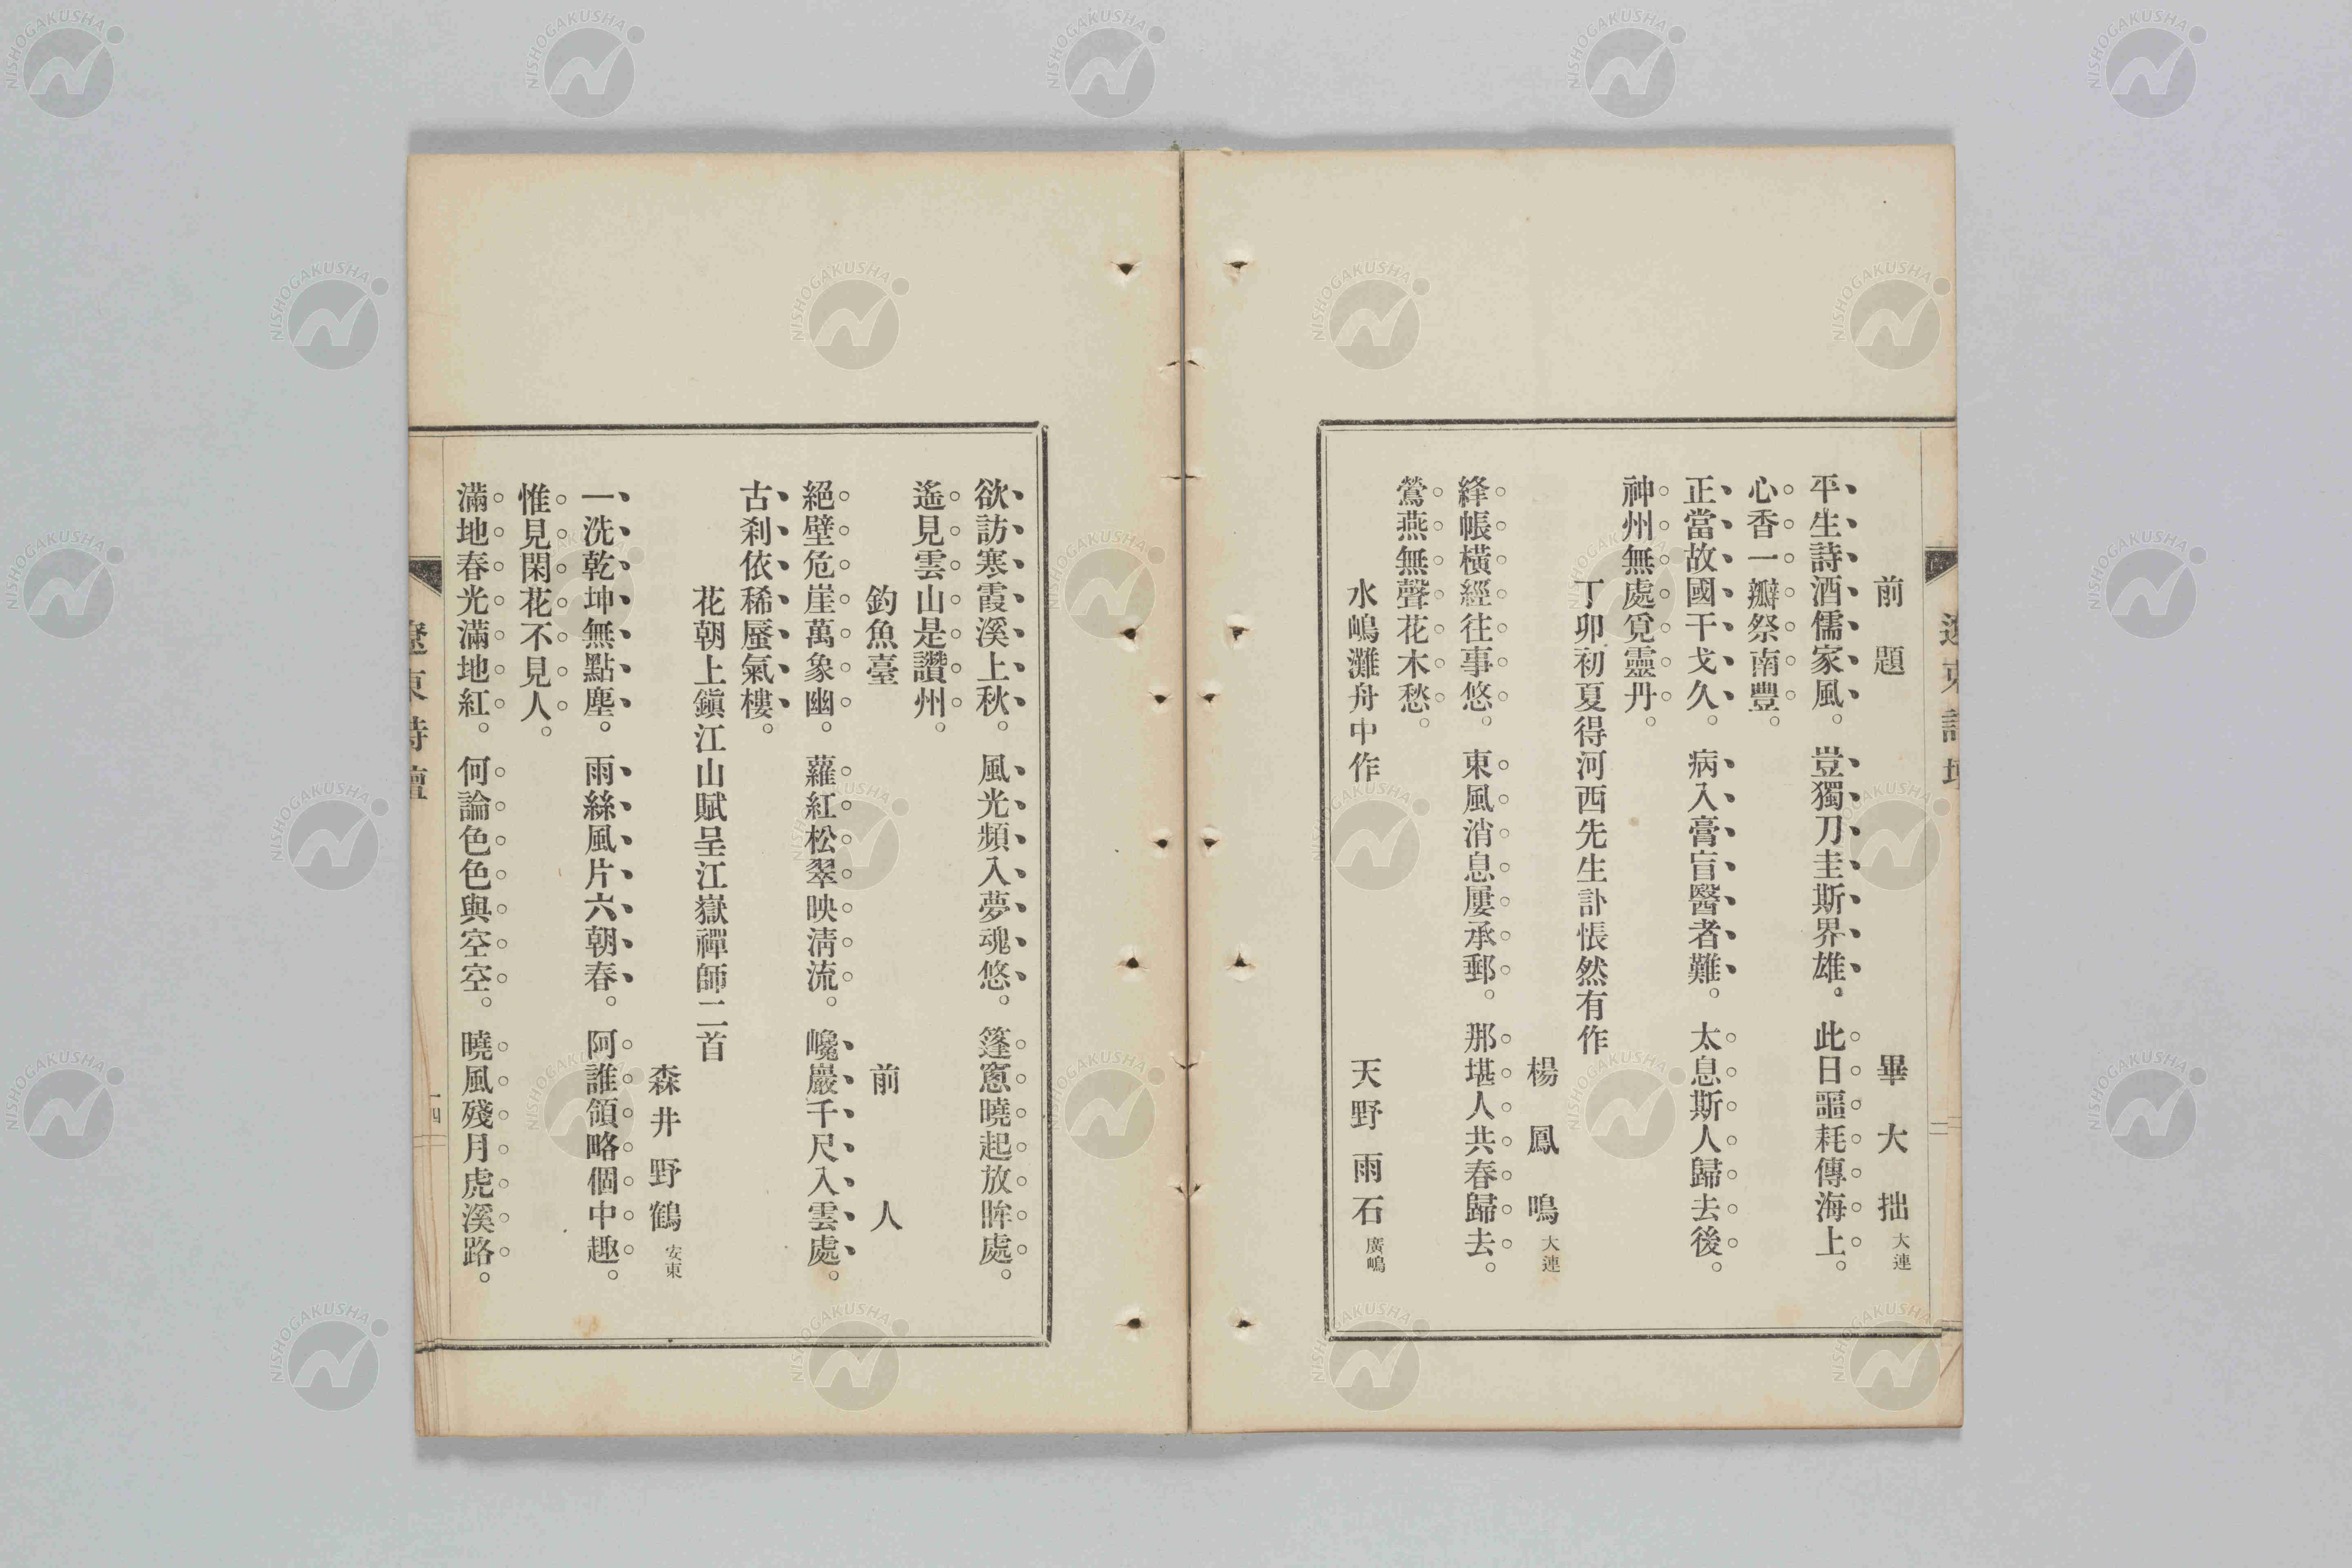 前題　畢大拙 大連
平生詩酒儒家風。豈獨刀圭斯界雄。此日噩耗傳海上。
心香一瓣祭南豐。
正當故國干戈久。病入膏盲醫者難。太息斯人歸去後。
神州無處覓靈丹。
丁卯初夏得河西先生訃悵然有作
楊鳳鳴 大連
絳帳橫經往事悠。東風消息屢承郵。那堪人共春歸去。
鶯燕無聲花木愁。
水嶋灘舟中作　天野雨石 廣嶋
欲訪寒霞溪上秋。風光頻入夢魂悠。篷窻曉起放眸處。
遙見雲山是讚州。
釣魚臺　前人
絕壁危崖萬象幽。蘿紅松翠映淸流。巉巖千尺入雲處。
古刹依稀蜃氣樓。
花朝上鎭江山賦呈江嶽禪師二首
森井野鶴 安東
一洗乾坤無點塵。雨絲風片六朝春。阿誰領略個中趣。
惟見閑花不見人。
滿地春光滿地紅。何論色色與空空。曉風殘月虎溪路。
遼東詩壇
一四
NISHOGAKUSHA